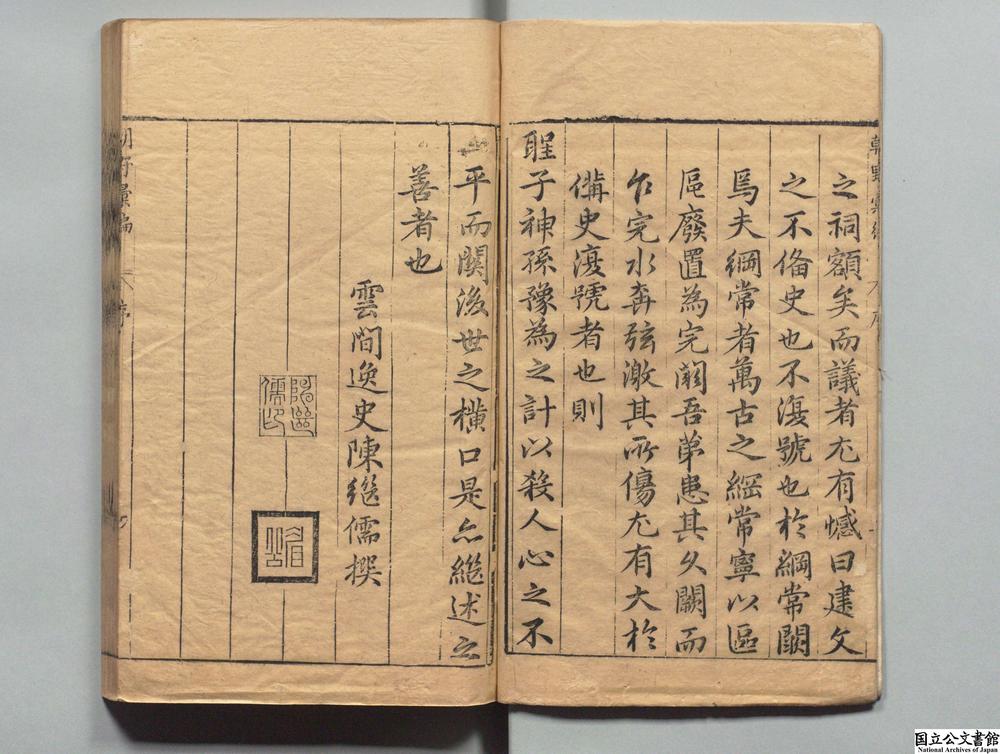 之祠額矣而議者尤有憾曰建文
之不俻史也不復號也於綱常關
焉夫綱常者萬古之綱常寧以區
區廢置為完闕吾第患其久闕而
乍完水奔弦激其所傷尤有大於
備史復號者也則
聖子神孫豫為之計以殺人心之不
平而關後世之橫口是亦繼述之
善者也
雲間逸史陳繼儒撰
陳繼
儒印
眉
國立公文書館
National Archives of Japan